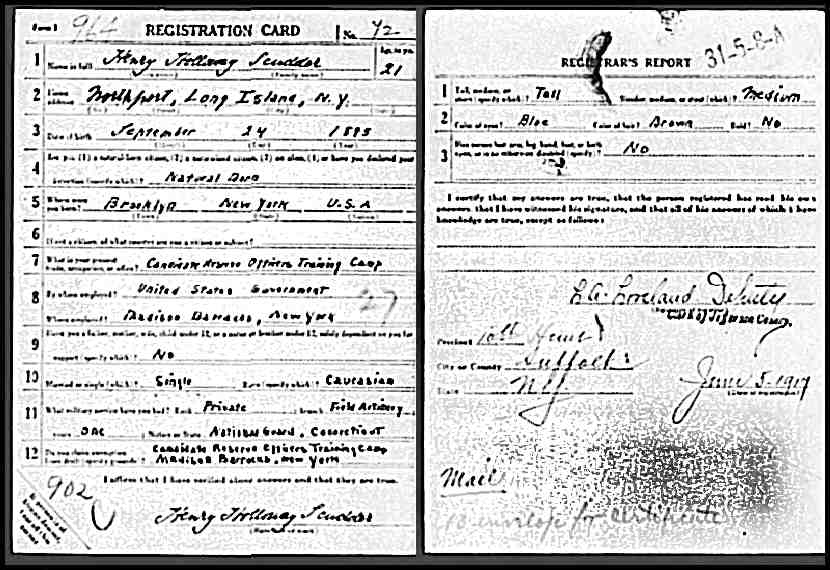 Form 1 964 REGISTRATION CARD No. 42
1 Name in full Henry Holloway Scudder 21
2 Home address Northport, Long Island, N.Y.
3 Date of birth September 24 1895
4 Are you (1) a natural born citizen, (2) a naturalized citizen, (3) an alien, (4) or have you declared your
intention (specify which)? Natural Born
5 Where were you born? Brooklyn New York U.S.A
6 If not a citizen, of what country are you a citizen or subject?
7 What is your present trade, occupation, or office? Candidate Reserve Officers Training Camp
8 By whom employed? United States Government
Where employed? Madison Barracks, New York 27
9 Have you a father, mother, wife, child under 12, or a sister or brother under 12, solely dependent on you for
support (specify which)? No
10 Married or single (which)? Single Race (specify which)? Caucasian
11 What military service have you had? Rank Private branch Field Artillery
years one Nation or State National Guard, Connecticut
12 Do you claim exemption from draft (specify grounds)? Candidate Reserve Officers Training Camp
Madison Barracks, New York
I affirm that I have verified above answers and that they are true.
902
Henry Holloway Scudder
REGISTRAR'S REPORT 31-5-8-A
1 Tall, medium, or short (specify which)? Tall Slender, medium, or stout (which)? Medium
2 Color of eyes? Blue Color of hair? Brown Bald? No
3 Has person lost arm, leg, hand, foot, or both eyes, or is he otherwise disabled (specify)? No
I certify that my answers are true, that the person registered has read his own
answers, that I have witnessed his signature, and that all of his answers of which I have
knowledge are true, except as follows:
Loveland Deputy
Clerk of Jefferson County.
Precinct 10th
City or County Suffolk
State N.Y. June 5-1917
(Date of registration)
Mail
envelop for certificate